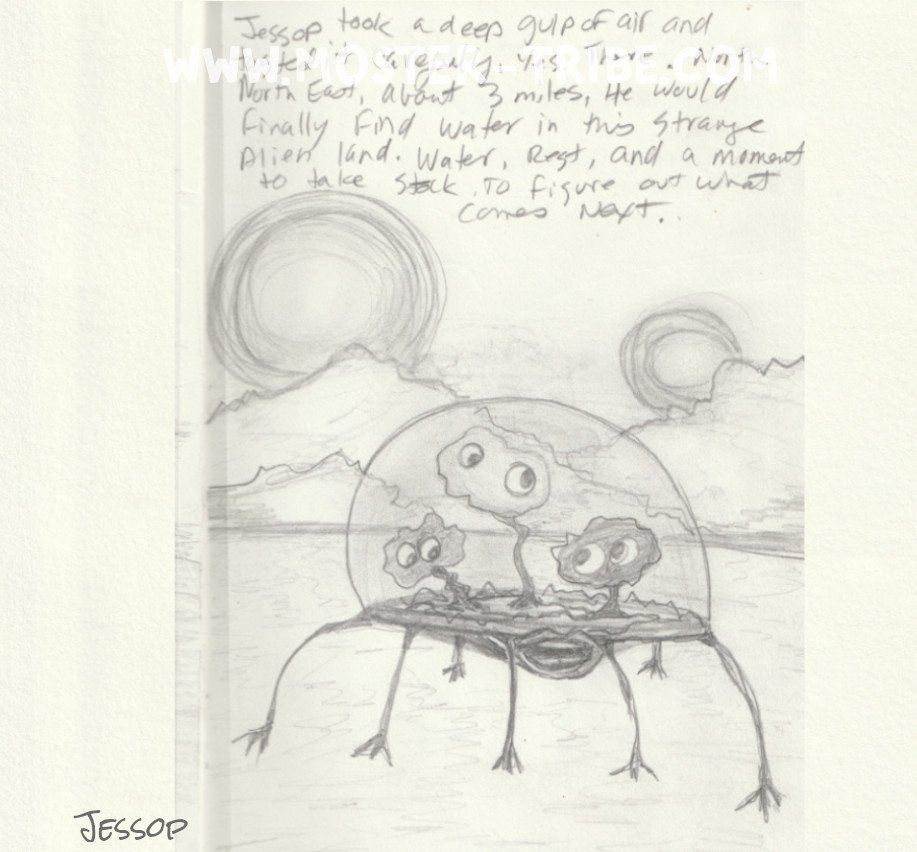 Jessop took a deep gulp of air and
carefully. Yes, There. North
WWW.MOSTER-TRIBE.COM
North East, about 3 miles, He would
finally find water in this strange
Alien land. Water, Rest, and a moment
to take stock. To figure out what
comes Next..
JESSOP